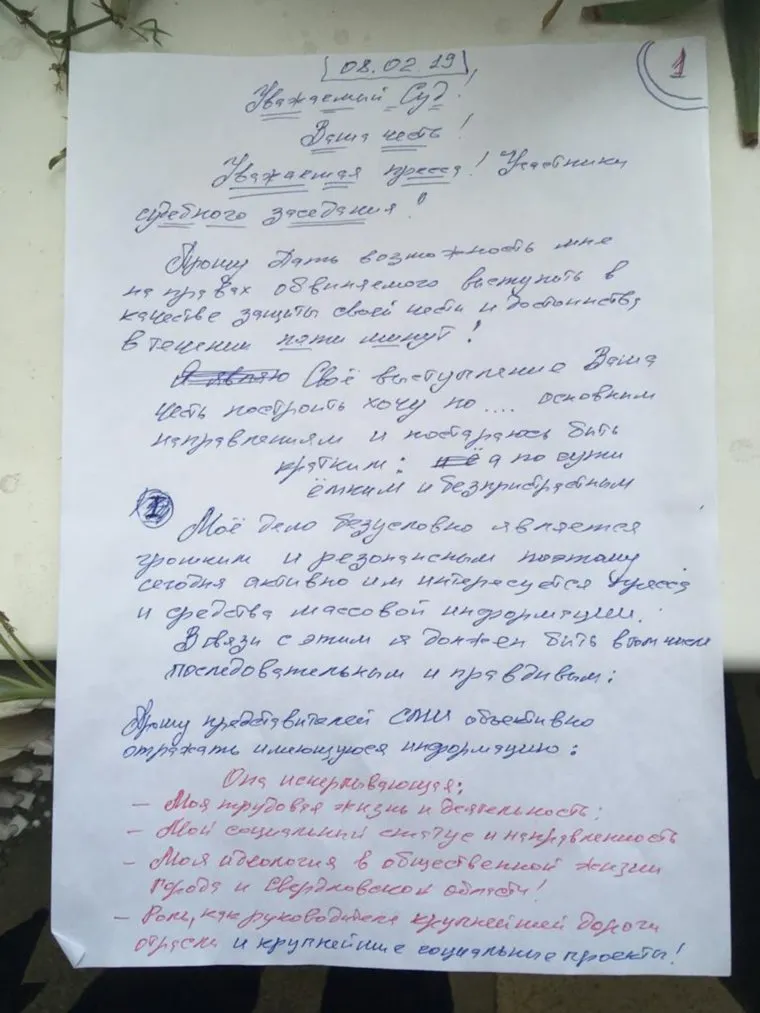 08.02.19
1
Уважаемый Суд!
Ваша честь!
Уважаемая пресса! Участники
судебного заседания!
Прошу Дать возможность мне
на правах обвиняемого выступить в
качестве защиты своей чести и достоинства
в течении пяти минут!
Своё выступление Ваша
честь построить хочу по .... основным
направлениям и постараюсь быть
кратким: а по сути
ёмким и безпристрастным
I Моё дело безусловно является
громким и резонансным поэтому
сегодня активно им интересуется пресса
и средства массовой информации.
В связи с этим я должен быть в том числе
последовательным и правдивым:
Прошу представителей СМИ объективно
отражать имеющуюся информацию:
Она исчерпывающая:
– Моя трудовая жизнь и деятельность;
– Мой социальный статус и направленность
– Моя идеология в общественной жизни
города и Свердловской области!
– Роль, как руководителя крупнейшей дороги
отрасли и крупнейшие социальные проекты!